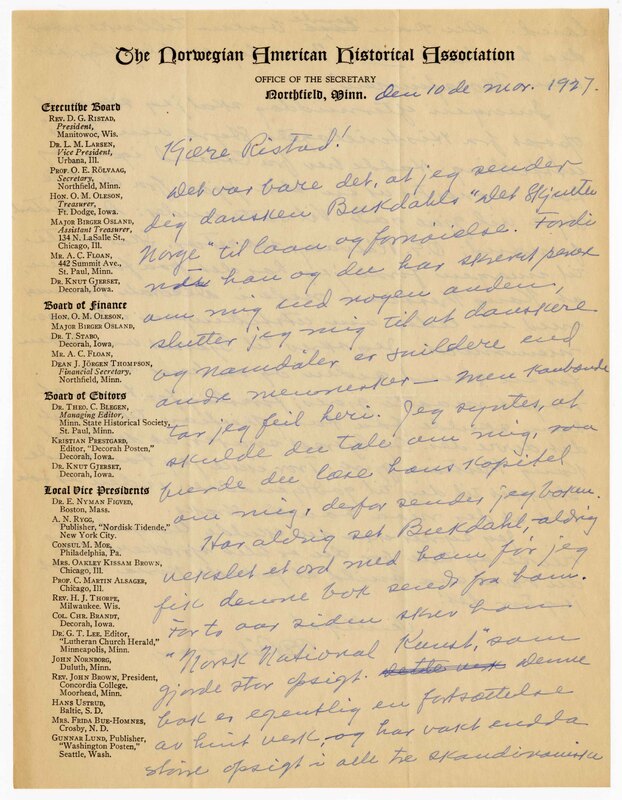 The Norwegian American Historical Association
OFFICE OF THE SECRETARY
Northfield, Minn.
den 10 de mar. 1927.
Executive Board
REV. D. G. RISTAD,
President,
Manitowoc, Wis.
DR. L. M. LARSEN,
Vice President,
Urbana, Ill.
PROF. O. E. RÖLVAAG,
Secretary,
Northfield, Minn.
HON. O. M. OLESON,
Treasurer,
Ft. Dodge, Iowa.
MAJOR BIRGER OSLAND,
Assistant Treasurer,
134 N. LaSalle St.,
Chicago, Ill.
MR. A. C. FLOAN,
442 Summit Ave.,
St. Paul, Minn.
DR. KNUT GJERSET,
Decorah, Iowa.
Board of Finance
HON. O. M. OLESON,
MAJOR BIRGER OSLAND,
DR. T. STABO,
Decorah, Iowa.
MR. A. C. FLOAN,
DEAN J. JÖRGEN THOMPSON,
Financial Secretary,
Northfield, Minn.
Board of Editors
DR. THEO. C. BLEGEN,
Managing Editor,
Minn. State Historical Society,
St. Paul, Minn.
KRISTIAN PRESTGARD,
Editor, "Decorah Posten,"
Decorah, Iowa.
DR. KNUT GJERSET,
Decorah, Iowa.
Local Vice Presidents
DR. E. NYMAN FIGVED,
Boston, Mass.
A. N. RYGG,
Publisher, "Nordisk Tidende,"
New York City.
CONSUL M. MOE,
Philadelphia, Pa.
MRS. OAKLEY KISSAM BROWN,
Chicago, Ill.
PROF. C. MARTIN ALSAGER,
Chicago, Ill.
REV. H. J. THORPE,
Milwaukee. Wis.
COL. CHR. BRANDT,
Decorah, Iowa.
DR. G. T. LEE, Editor,
"Lutheran Church Herald,"
Minneapolis, Minn.
JOHN NORNBORG,
Duluth, Minn.
REV. JOHN BROWN, President,
Concordia College,
Moorhead, Minn.
HANS USTRUD,
Baltic, S. D.
MRS. FRIDA BUE-HOMNES,
Crosby, N. D.
GUNNAR LUND, Publisher,
"Washington Posten,"
Seattle, Wash.
Kjære Ristad!
Det var bare det, at jeg sender
dig dansken Bukdahls "Det Skjulte
Norge" til laan og fornøielse. Fordi
han og du har skrevet
om mig end nogen anden,
slutter jeg mig til at danskere
og namdøler er snildere end
andre mennesker — men kanhende
tar jeg feil heri. Jeg syntes, at
skulde du tale om mig, saa
burde du læse hans kapitel
om mig, derfor sender jeg boken.
Har aldrig set Bukdahl, aldrig
vekslet et ord med ham før jeg
fik denne bok sendt fra ham.
For to aar siden skrev han
"Norsk National Kunst," som
gjorde stor opsigt. dette verk Denne
bok er egentlig en fortsættelse
av hint verk, og har vakt endda
større opsigt i alle tre skandinaviske